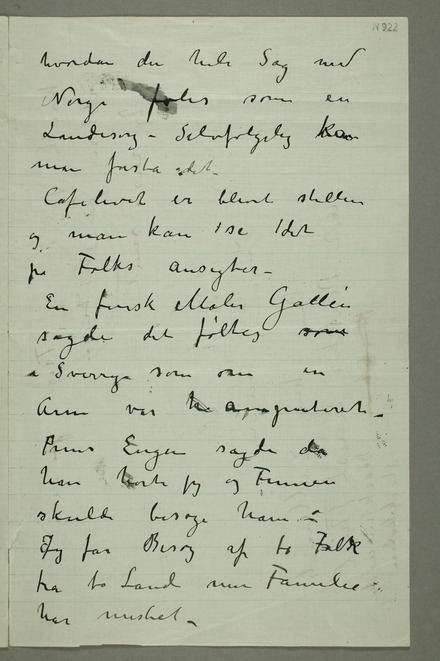 N 922
hvordan den hele Sag med
Norge føles som en
Landesorg – Selvfølgelig kan
man forstå det –
Cafelivet er blevet stillere
og man kan se det
på Folks ansigter –
En finsk Maler Gallén
sagde det føltes som
i Sverige som om en
Arm var amputeret –
Prins Eugen sagde da
han hørte jeg og Finnen
skulde besøge ham –
Jeg får Besøg af to Folk
fra to Land min Familie
har mistet –